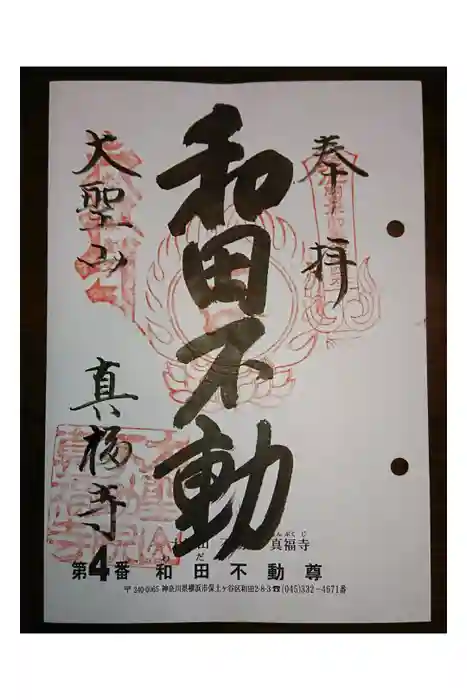 奉拝
和田不動
大聖山
真福寺
真福寺
んぷくじ
だ
第4番 和田不動尊
〒240-0065 神奈川県横浜市保土ヶ谷区和田2-8-3 ☎(045)332-4671番